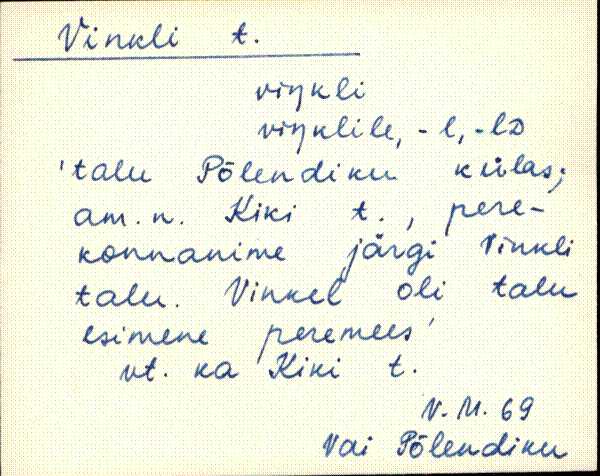 Vinkli t.
viŋkli
viŋklile, -l, -lᴅ
'talu Põlendiku külas;
am. n. Kiki t., pere-
konnanime järgi Vinkli
talu. Vinkel oli talu
esimene peremees'
vt. ka Kiki t.
V. M. 69
Vai Põlendiku